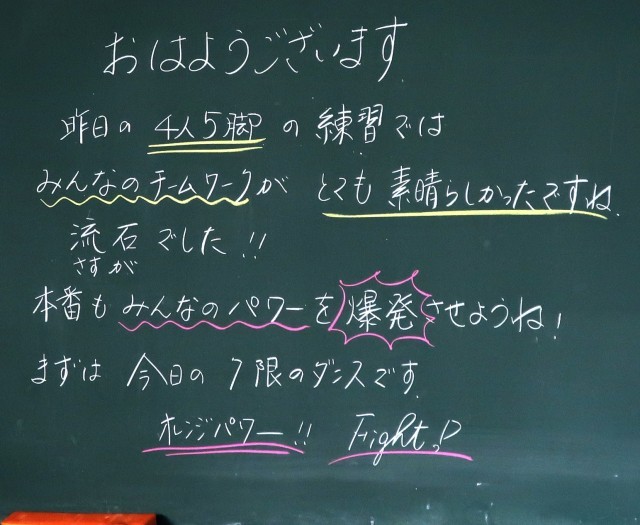 おはようございます
昨日の4人5脚の練習では
みんなのチームワークが とても素晴らしかったですね
流石でした!!
さすが
本番もみんなのパワーを爆発させようね!
まずは今日の7限のダンスです
オレンジパワー!! Fight♪